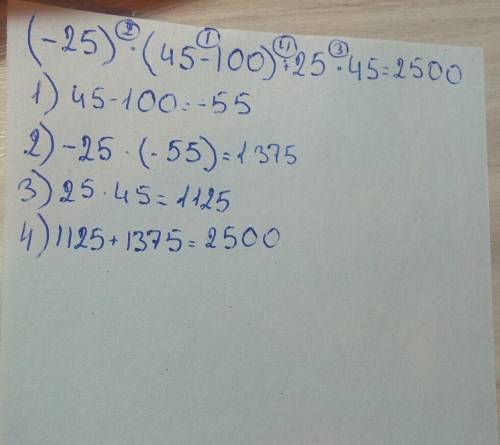 ② ① ④ ③
(-25) · (45-100) + 25 · 45 = 2500
1) 45-100 = -55
2) -25 · (-55) = 1375
3) 25 · 45 = 1125
4) 1125 + 1375 = 2500